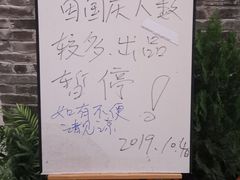 因国庆人数
较多.出品
暂停!
如有不便
请见谅
2019.10.